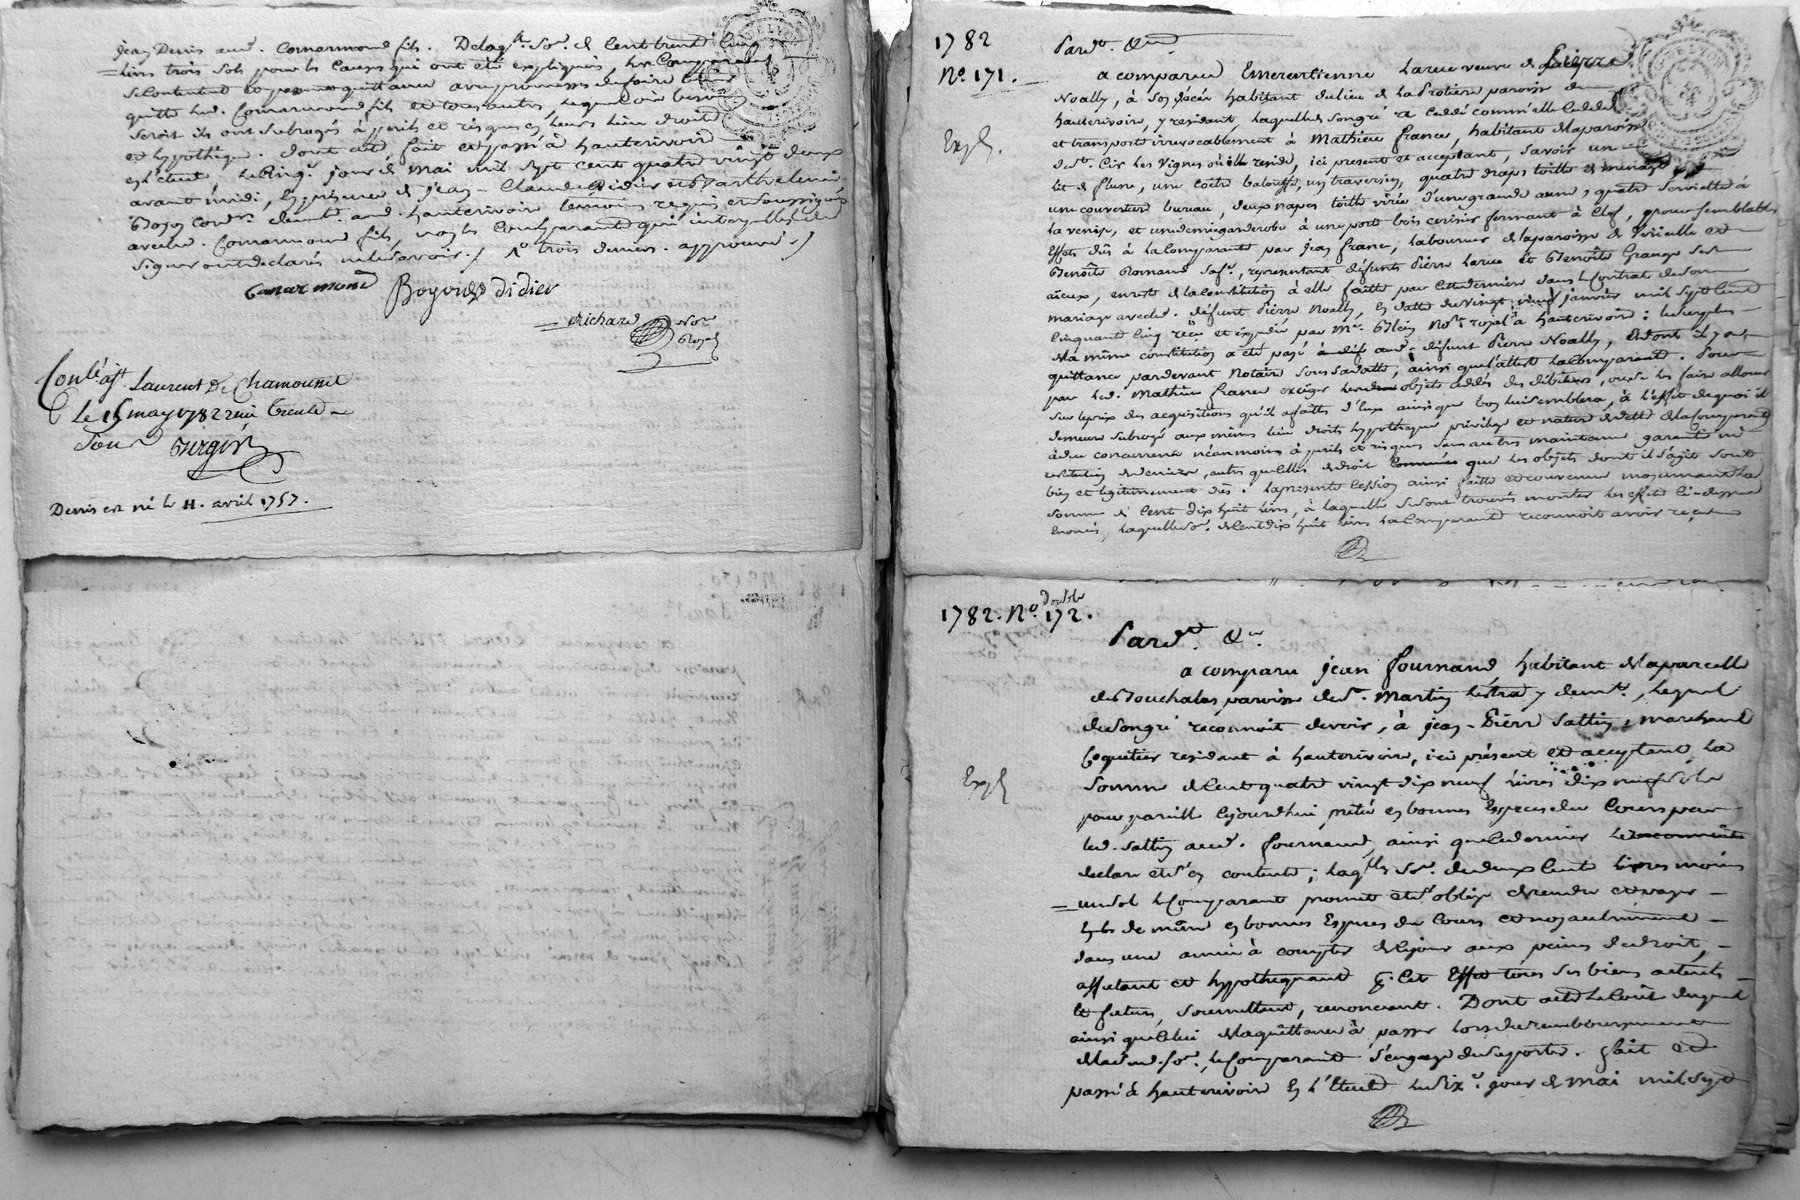 Jean Denis aud. Comarmond fils. Delaq.lle So.e de Cent trente Cinq
livres trois sols pour les Causes qui ont été expliquées, les Comparants
se Contentent et quittance avec promesse de faire tenir
quitte led. Comarmond fils et tous autres, lequel où besoin
seroit ils ont subrogés à périls et risques, leurs lieu droits
et hypothèque. Dont acte fait et passé à hauterivoir
en l'étude, le cinq.e jour de mai mil sept cent quatre vingt deux
avant midi, En présence de Jean-Claude Didier et Barthelemi
Boyon Cord.rs demt. aud. hauterivoir témoins requis et soussignés
avec led. Comarmond fils, non les Comparants qui interpellés de
signer ont declarés ne le savoir ./ 1.o trois deniers. approuvé ./
Comarmond Boyon Didier
Richard No.re
Royal
Con.lé à St. Laurent De Chamousset
Le 15 may 1782 recu trente
sous
Denis est né le 11. avril 1757.
1782
N.o 171.
Expé.
Pard.t &a.
a comparu Emerentienne Larue veuve de Pierre
Noally, à son décès habitant du lieu de la Protiere paroisse de
hauterivoire, y residant, laquelle de son gré a cedé comm'elle cede
et transporte irrevocablement à Mathieu france, habitant de la paroisse
de St. Cir les Vignes où il reside, ici present et acceptant, savoir un
lit de plume, une Coëtre balouffe, un traversin, quatre draps toille de menage
une couverture bureau, deux napes toille virée d'une grande aune, quatre serviettes à
la venise, et une demi garderobe à une porte bois cerisier fermant à Clef, pour semblables
Effets dûs à la Comparante par jean france, laboureur de la paroisse de Viricelle et
Benoite Romand sa fe., representant défunts Pierre Larue et Benoite Grange ses
aïeux, en reste de la Constitution à elle faitte par cette derniere dans le Contrat de son
mariage avec led. défunt Pierre Noally, en datte du vingt neuf janvier mil sept cent
cinquante cinq reçu et expédié par M.e Blein No.re royal à hauterivoire: le surplus
de la même constitution a été payé aud. défunt Pierre Noally, et dont il y a
quittance pardevant Notaire sous sa datte, ainsi que l'atteste la Comparante. Pour
par led. Mathieu france exiger lesd. objets cédés des débiteurs, ou se les faire allouer
sur le prix des acquisitions qu'il a faitte d'eux ainsi que bon lui semblera, à l'effet de quoi il
demeure subrogé aux mêmes lieu droits hypotheque privilege et nature de dette de la Comparante
à due concurrence néanmoins à perils et risques sans autres maintenue garantie ni
restitution de deniers, autre qu'elles de droit que les objets dont il s'agit sont
bien et legitimement dûs. La presente Cession ainsi faitte et convenue moyennant la
somme de Cent dix huit livres, à laquelle se sont trouvés monter les effets ci-dessus
énoncés, laquelle so.e de Cent dix huit livres la Comparante reconnoit avoir reçue
1782. N.o 172.
double
Expé
Pard.t &a.
a comparu jean fournand habitant de la parcelle
de Bouchalas paroisse de St. Martin Lestra y demt., lequel
de son gré reconnoit devoir, à jean-Pierre Sattin, marchand
Coquetier residant à hauterivoire, ici présent et acceptant la
somme de Cent quatre vingt dix neuf livres dix neuf sols
pour pareille cejourd'hui prêtée en bonnes Especes du Cours par
led. Sattin aud. fournand, ainsi que ce dernier le reconnoit
declare et s'en contente; laq.lle So.e de deux Cent livres moins
un sol le Comparant promet et s'oblige de rendre et payer
en de même en bonnes Especes du Cours et non autrement
dans une année à compter de ce jour aux peines de droit,
affectant et hypothequant p.r cet Effet tous ses biens actuels
et futurs, soumettant, renonceant. Dont acte le Coût duquel
ainsi que celui de la quittance à passer lors du remboursement
de lad. So.e, le Comparant s'engage de supporter. fait et
passé à hauterivoire En l'Etude le Six.e jour de mai mil sept